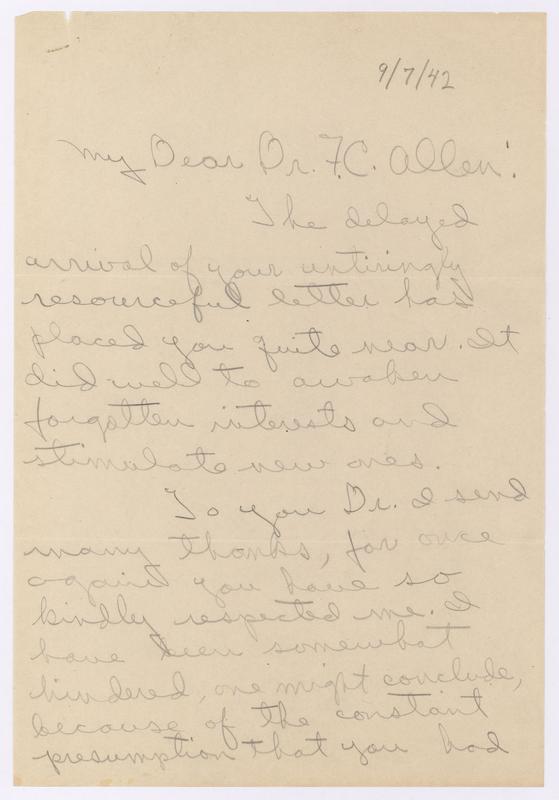 9/7/42
My Dear Dr. F.C. Allen:
The delayed
arrival of your untiringly
resourceful letter has
placed you quite near. It
did well to awaken
forgotten interests and
stimulate new ones.
To you Dr. I send
many thanks, for once
again you have so
kindly respected me. I
have been somewhat
hindered, one might conclude,
because of the constant
presumption that you had